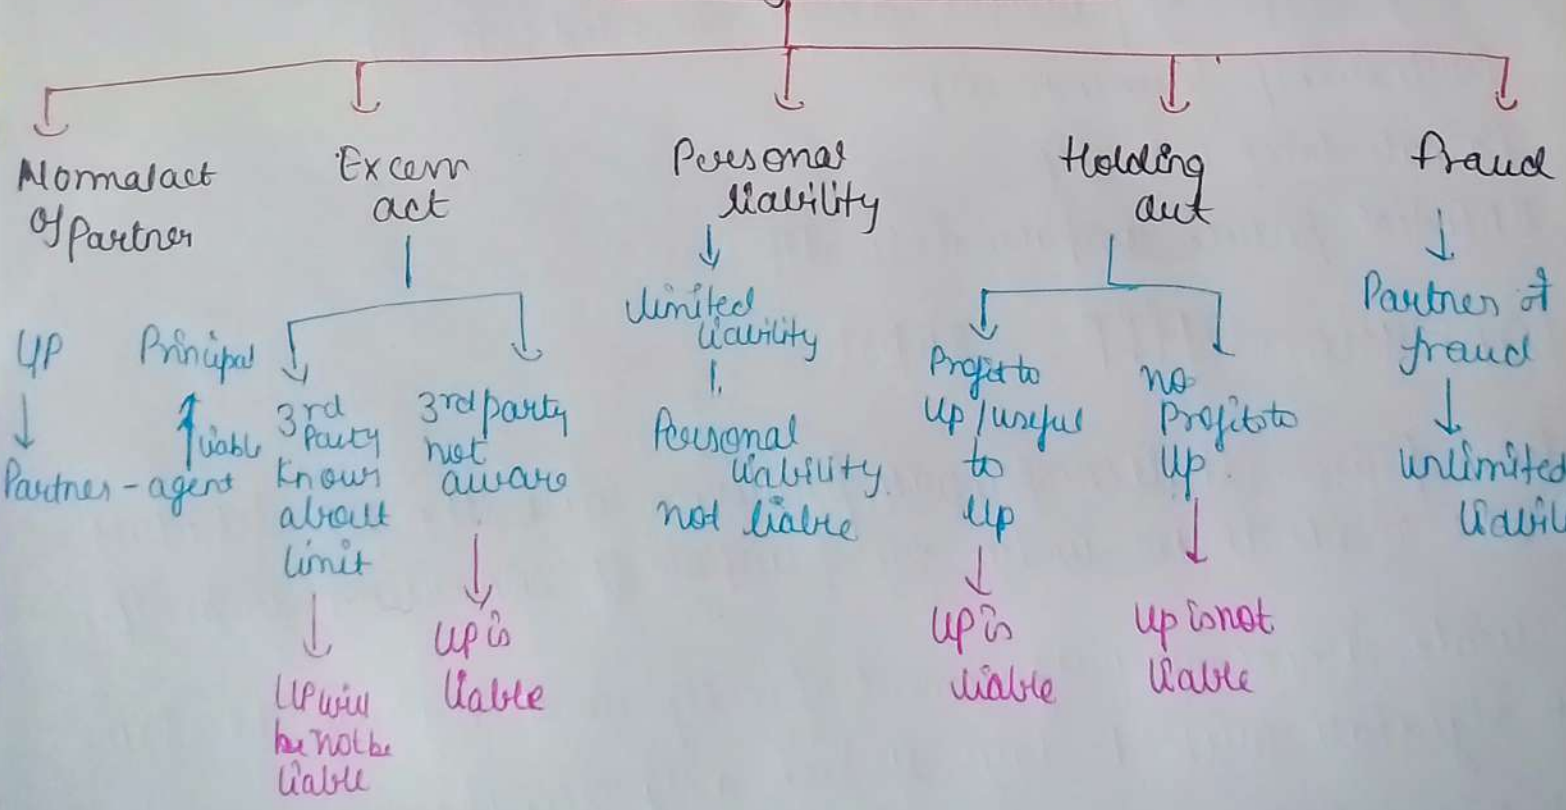 Normal act
of Partner
LLP
Principal
liable
Partner - agent
Excess
act
3rd
Party
knows
about
limit
LLP will
be not be
liable
3rd party
not
aware
LLP is
liable
Personal
liability
limited
liability
Personal
liability
not liable
Holding
out
Profit to
LLP / useful
to
LLP
LLP is
liable
no
Profit to
LLP
LLP is not
liable
fraud
Partner of
fraud
unlimited
liabil